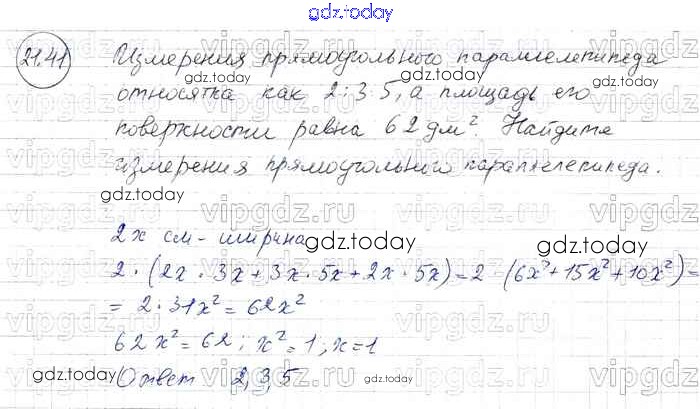 gdz.today
21.41 Измерения прямоугольного параллелепипеда
относятся как 2:3:5, а площадь его
поверхности равна 62 дм². Найдите
измерения прямоугольного параллелепипеда.
gdz.today
2x см - ширина
2·(2x·3x+3x·5x+2x·5x)=2·(6x²+15x²+10x²)=
= 2·31x² = 62x²
62x²=62; x²=1; x=1
Ответ 2,3,5
gdz.today
vipgdz.ru